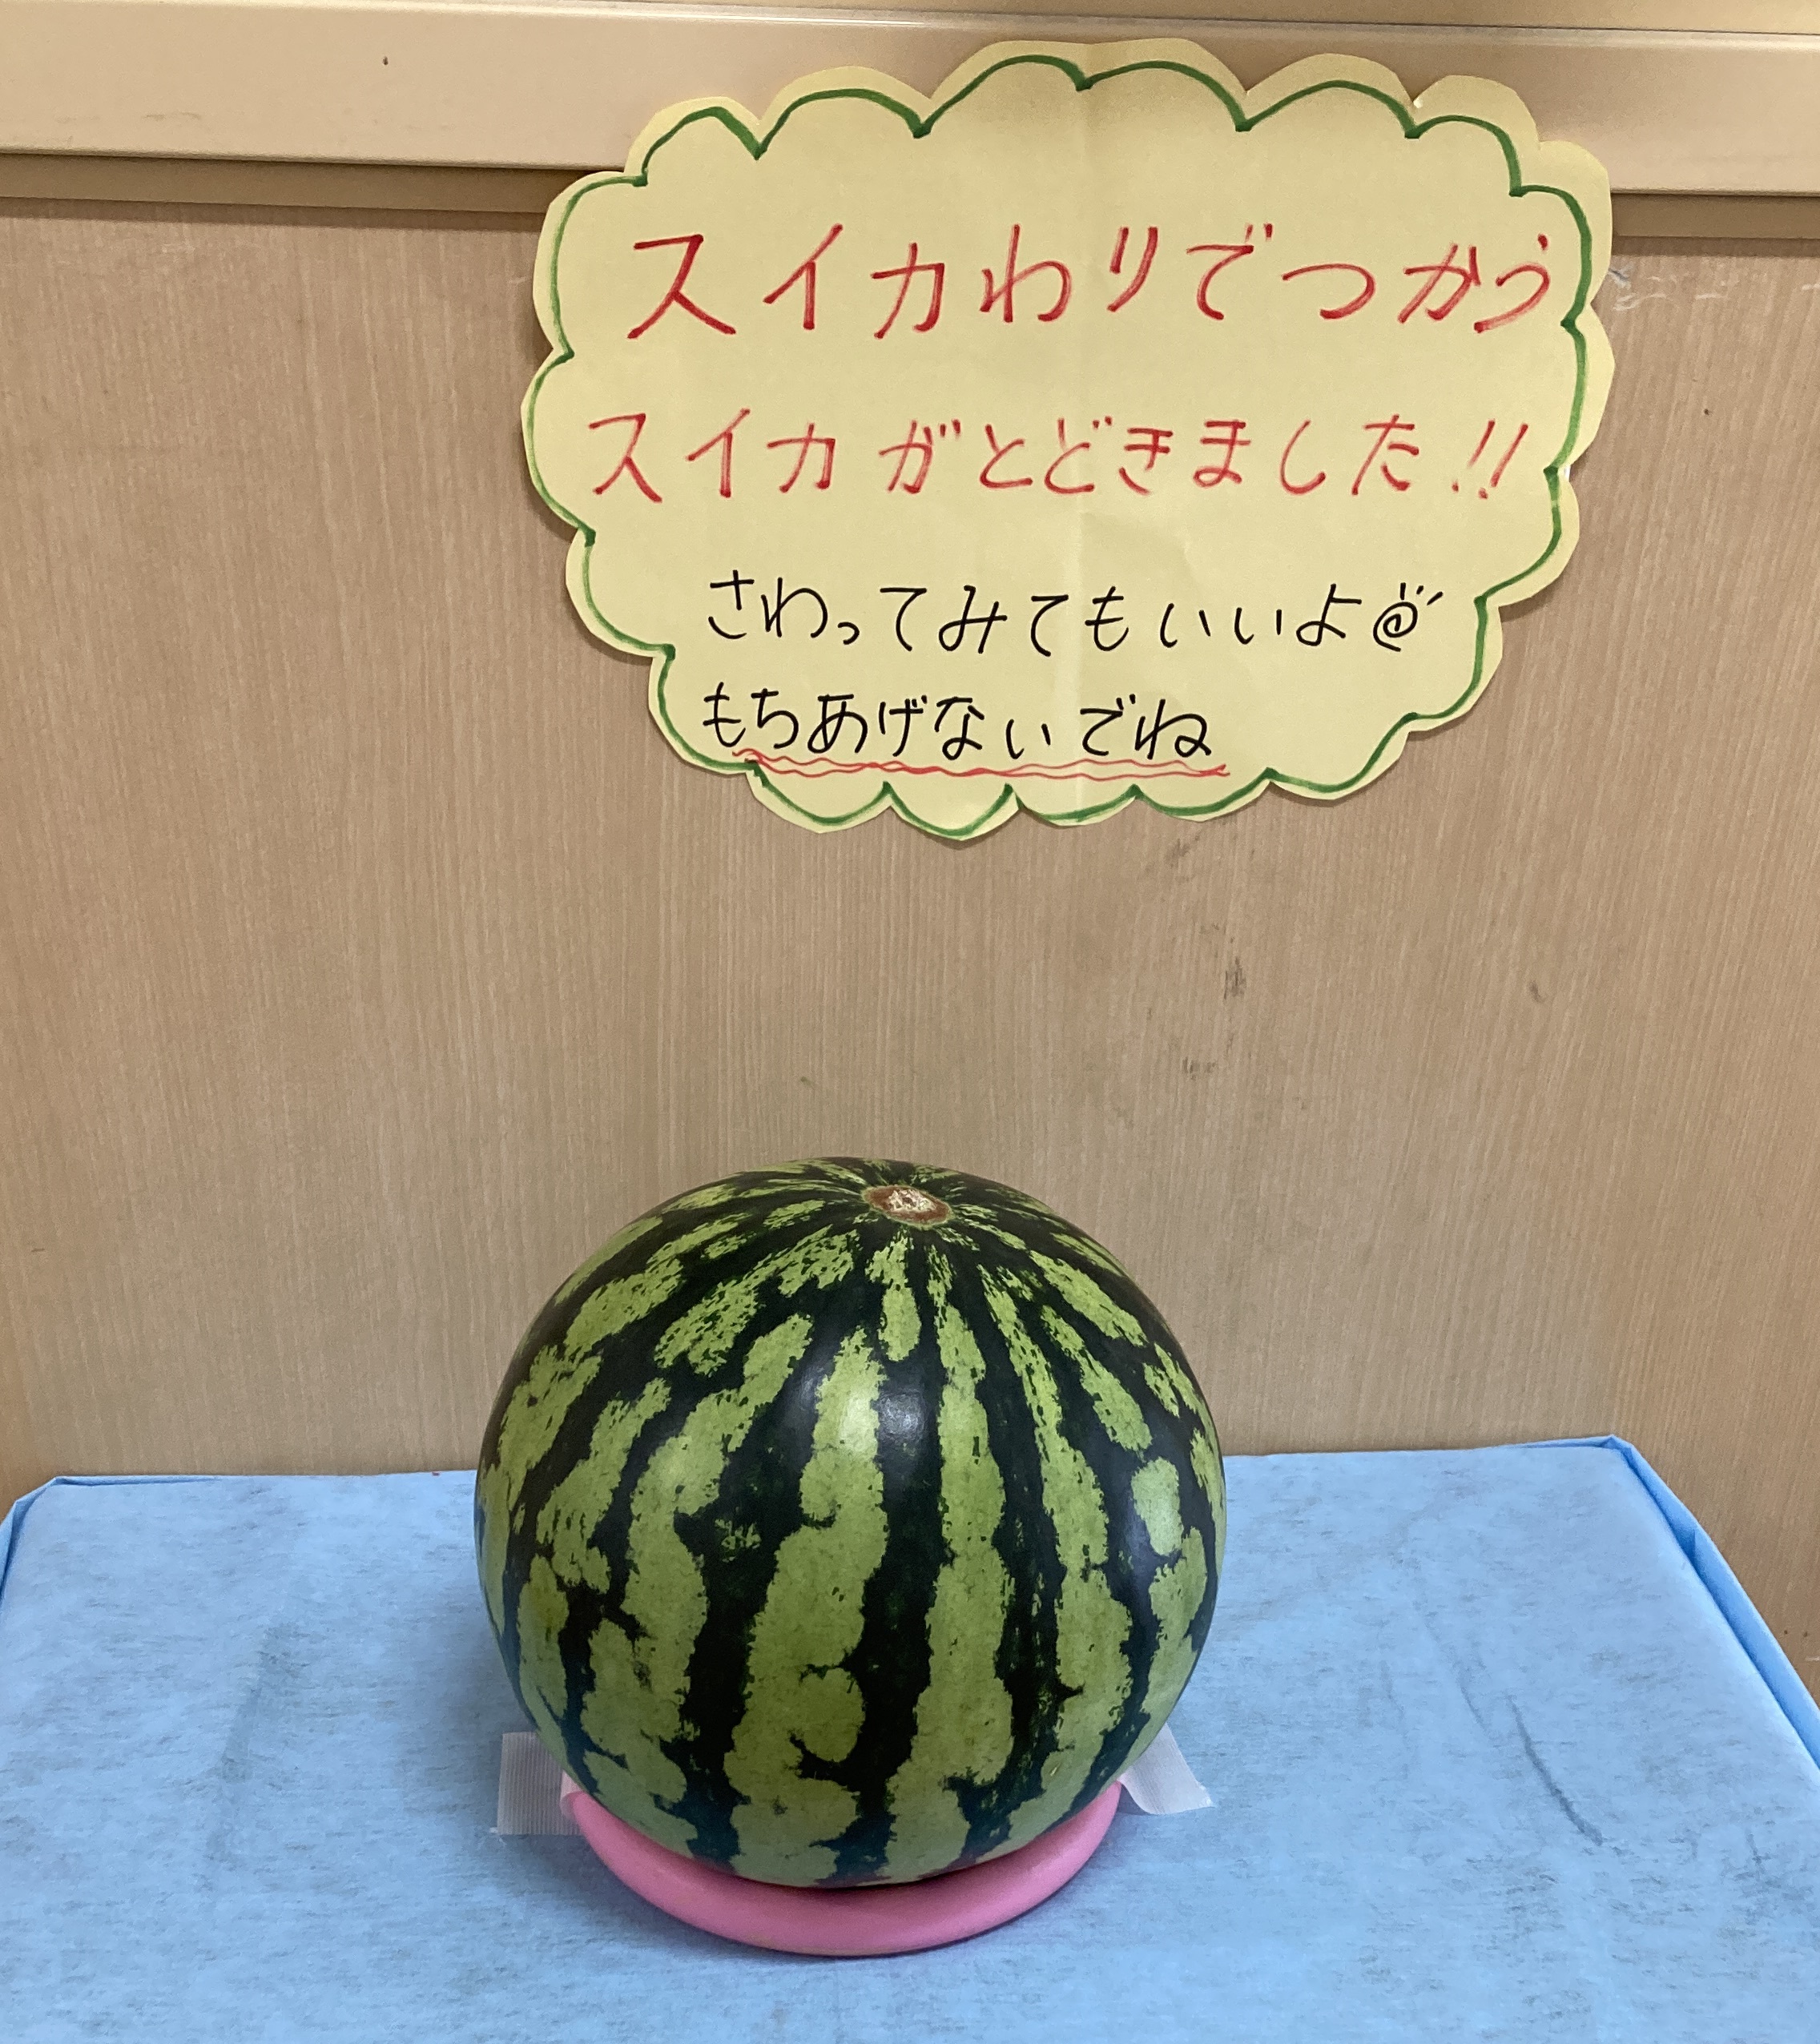 スイカわりでつかう
スイカがとどきました!!
さわってみてもいいよ
もちあげないでね